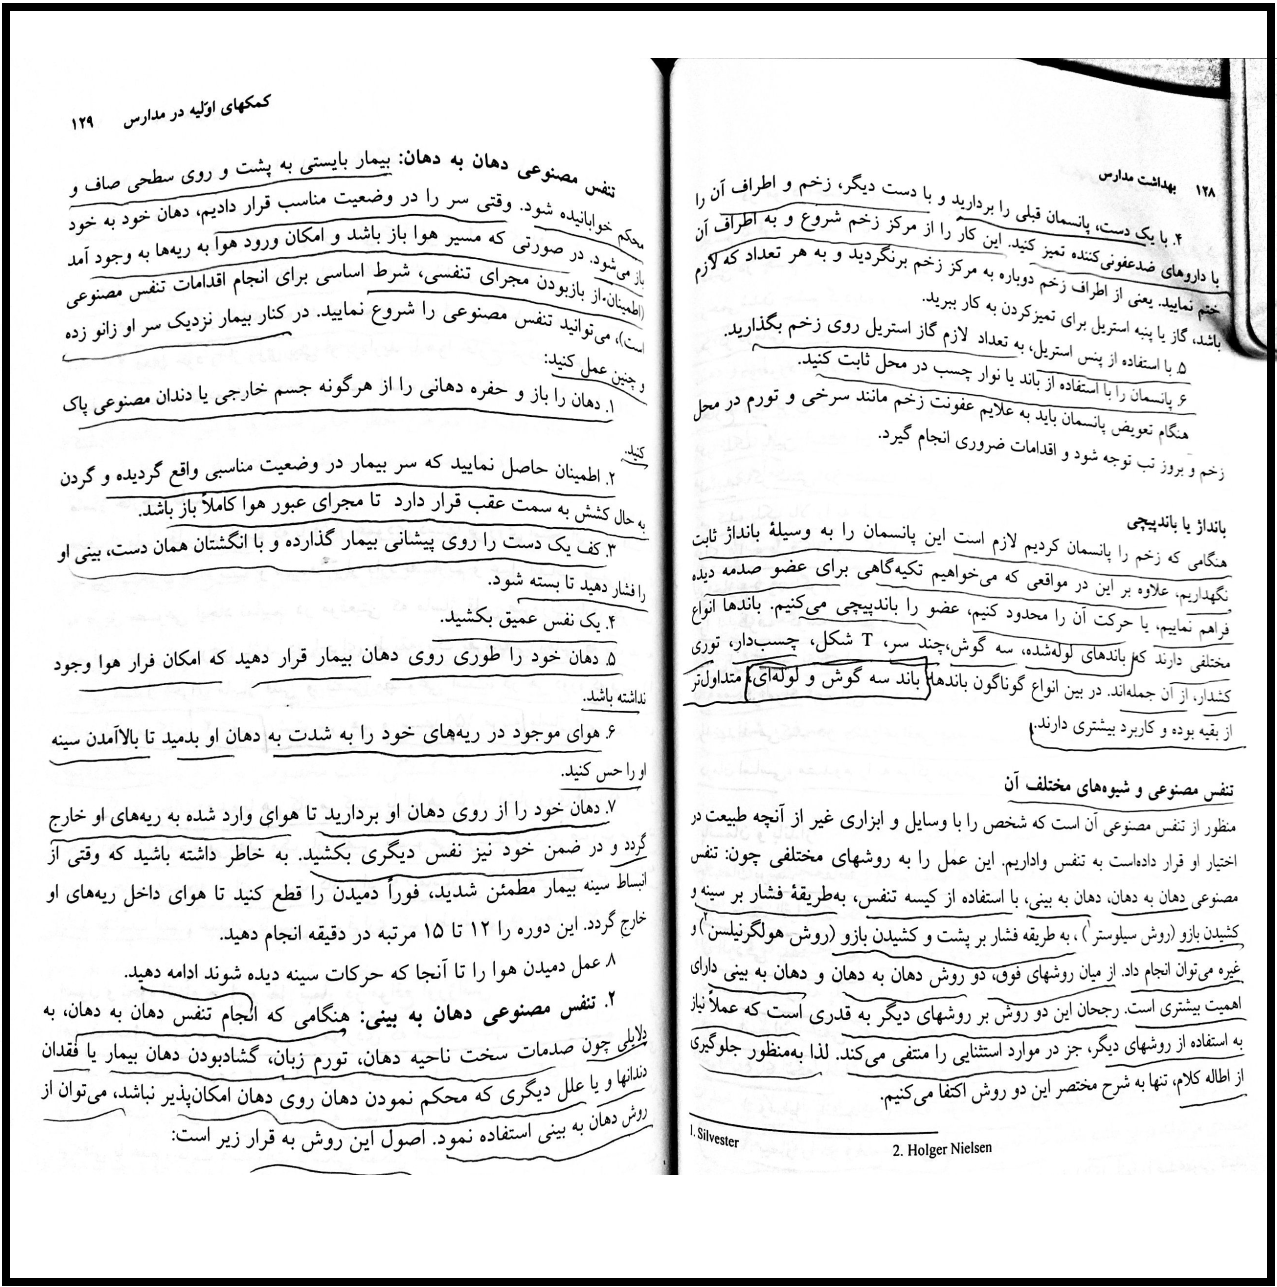 ۱۲۸ بهداشت مدارس
۴. با یک دست، پانسمان قبلی را بردارید و با دست دیگر، زخم و اطراف آن را
با داروهای ضدعفونی‌کننده تمیز کنید. این کار را از مرکز زخم شروع و به اطراف آن
ختم نمایید. یعنی از اطراف زخم دوباره به مرکز زخم برنگردید و به هر تعداد که لازم
باشد، گاز یا پنبه استریل برای تمیزکردن به کار ببرید.
۵. با استفاده از پنس استریل، به تعداد لازم گاز استریل روی زخم بگذارید.
۶. پانسمان را با استفاده از باند یا نوار چسب در محل ثابت کنید.
هنگام تعویض پانسمان باید به علایم عفونت زخم مانند سرخی و تورم در محل
زخم و بروز تب توجه شود و اقدامات ضروری انجام گیرد.
بانداژ یا باندپیچی
هنگامی که زخم را پانسمان کردیم لازم است این پانسمان را به وسیلهٔ بانداژ ثابت
نگهداریم، علاوه بر این در مواقعی که می‌خواهیم تکیه‌گاهی برای عضو صدمه دیده
فراهم نماییم، یا حرکت آن را محدود کنیم، عضو را باندپیچی می‌کنیم. باندها انواع
مختلفی دارند که باندهای لوله‌شده، سه گوش، چند سر، T شکل، چسب‌دار، توری
کشدار، از آن جمله‌اند. در بین انواع گوناگون باندها، باند سه گوش و لوله‌ای، متداول‌تر
از بقیه بوده و کاربرد بیشتری دارند.
تنفس مصنوعی و شیوه‌های مختلف آن
منظور از تنفس مصنوعی آن است که شخص را با وسایل و ابزاری غیر از آنچه طبیعت در
اختیار او قرار داده‌است به تنفس واداریم. این عمل را به روشهای مختلفی چون: تنفس
مصنوعی دهان به دهان، دهان به بینی، با استفاده از کیسه تنفس، به‌طریقهٔ فشار بر سینه و
کشیدن بازو (روش سیلوستر۱)، به طریقه فشار بر پشت و کشیدن بازو (روش هولگرنیلسن۲) و
غیره می‌توان انجام داد. از میان روشهای فوق، دو روش دهان به دهان و دهان به بینی دارای
اهمیت بیشتری است. رجحان این دو روش بر روشهای دیگر به قدری است که عملاً نیاز
به استفاده از روشهای دیگر، جز در موارد استثنایی را منتفی می‌کند. لذا به‌منظور جلوگیری
از اطاله کلام، تنها به شرح مختصر این دو روش اکتفا می‌کنیم.
1. Silvester
2. Holger Nielsen
کمکهای اوّلیه در مدارس ۱۲۹
تنفس مصنوعی دهان به دهان: بیمار بایستی به پشت و روی سطحی صاف و
محکم خوابانیده شود. وقتی سر را در وضعیت مناسب قرار دادیم، دهان خود به خود
باز می‌شود. در صورتی که مسیر هوا باز باشد و امکان ورود هوا به ریه‌ها به وجود آمد
(اطمینان از بازبودن مجرای تنفسی، شرط اساسی برای انجام اقدامات تنفس مصنوعی
است)، می‌توانید تنفس مصنوعی را شروع نمایید. در کنار بیمار نزدیک سر او زانو زده
و چنین عمل کنید:
۱. دهان را باز و حفره دهانی را از هرگونه جسم خارجی یا دندان مصنوعی پاک
کنید.
۲. اطمینان حاصل نمایید که سر بیمار در وضعیت مناسبی واقع گردیده و گردن
به حال کشش به سمت عقب قرار دارد تا مجرای عبور هوا کاملاً باز باشد.
۳. کف یک دست را روی پیشانی بیمار گذارده و با انگشتان همان دست، بینی او
را فشار دهید تا بسته شود.
۴. یک نفس عمیق بکشید.
۵. دهان خود را طوری روی دهان بیمار قرار دهید که امکان فرار هوا وجود
نداشته باشد.
۶. هوای موجود در ریه‌های خود را به شدت به دهان او بدمید تا بالاآمدن سینه
او را حس کنید.
۷. دهان خود را از روی دهان او بردارید تا هوای وارد شده به ریه‌های او خارج
گردد و در ضمن خود نیز نفس دیگری بکشید. به خاطر داشته باشید که وقتی از
انبساط سینه بیمار مطمئن شدید، فوراً دمیدن را قطع کنید تا هوای داخل ریه‌های او
خارج گردد. این دوره را ۱۲ تا ۱۵ مرتبه در دقیقه انجام دهید.
۸. عمل دمیدن هوا را تا آنجا که حرکات سینه دیده شوند ادامه دهید.
۲. تنفس مصنوعی دهان به بینی: هنگامی که انجام تنفس دهان به دهان، به
دلایلی چون صدمات سخت ناحیه دهان، تورم زبان، گشادبودن دهان بیمار یا فقدان
دندانها و یا علل دیگری که محکم نمودن دهان روی دهان امکان‌پذیر نباشد، می‌توان از
روش دهان به بینی استفاده نمود. اصول این روش به قرار زیر است: